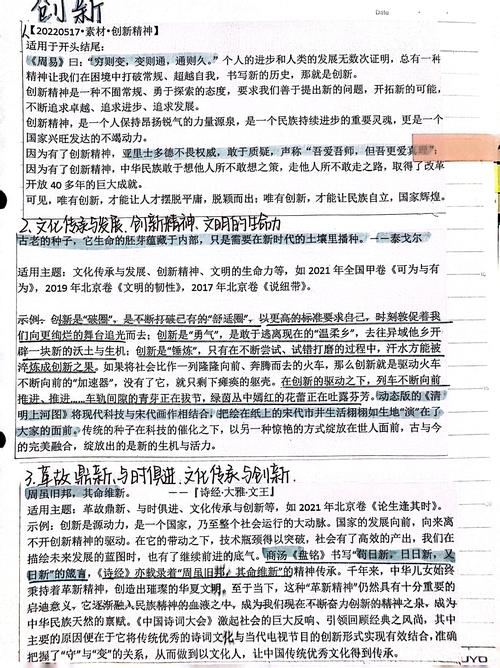 创新
Date
【20220517•素材•创新精神】
适用于开头结尾：
《周易》曰：“穷则变，变则通，通则久。”个人的进步和人类的发展无数次证明，总有一种
精神让我们在困境中打破常规、超越自我，书写新的历史，那就是创新。
创新精神是一种不囿常规、勇于探索的态度，要求我们善于提出新的问题，开拓新的可能，
不断追求卓越、追求进步、追求发展。
创新精神，是一个人保持昂扬锐气的力量源泉，是一个民族持续进步的重要灵魂，更是一个
国家兴旺发达的不竭动力。
因为有了创新精神，亚里士多德不畏权威，敢于质疑，声称“吾爱吾师，但吾更爱真理”；
因为有了创新精神，中华民族敢于想他人所不敢想之策，走他人所不敢走之路，取得了改革
开放 40 多年的巨大成就。
可见，唯有创新，才能让人才摆脱平庸，脱颖而出；唯有创新，才能让民族自立，国家辉煌。
2.文化传承与发展、创新精神、文明的生命力
古老的种子，它生命的胚芽蕴藏于内部，只是需要在新时代的土壤里播种。——泰戈尔
适用主题：文化传承与发展、创新精神、文明的生命力等，如 2021 年全国甲卷《可为与有
为》，2019 年北京卷《文明的韧性》，2017 年北京卷《说纽带》。
示例：创新是“破圈”，是不断打破已有的“舒适圈”，以更高的标准要求自己，时刻敦促着我
们向更绚烂的舞台追光而去；创新是“勇气”，是敢于逃离现在的“温柔乡”，去往异域他乡开
辟一块新的沃土与生机；创新是“锤炼”，只有在不断尝试、试错打磨的过程中，汗水方能被
淬炼成创新之果。如果将社会比作一列隆隆向前、奔腾而去的火车，那么创新就是驱动火车
不断向前的“加速器”，没有了它，就只剩下瘫痪的躯壳。在创新的驱动之下，列车不断向前
推进、推进……车轨间隙的青芽正在拔节，绿茵丛中嫣红的花蕾正在吐露芬芳。动态版的《清
明上河图》将现代科技与宋代画作相结合，把绘在纸上的宋代市井生活栩栩如生地“演”在了
大家的面前。传统的种子在科技的催化之下，以另一种惊艳的方式绽放在世人面前，古与今
的完美融合，绽放出的是新的生机与活力。
3.革故鼎新、与时俱进、文化传承与创新.
周虽旧邦，其命维新。 ——『诗经·大雅·文王』
适用主题：革故鼎新、与时俱进、文化传承与创新等，如 2021 年北京卷《论生逢其时》。
示例：创新是源动力，是一个国家，乃至整个社会运行的大动脉。国家的发展向前，向来离
不开创新精神的驱动。在它的带动之下，技术瓶颈得以突破，社会有了高效的产出，我们在
描绘未来发展的蓝图时，也有了继续前进的底气。商汤《盘铭》书写“苟日新，日日新，又
日新”的箴言，《诗经》亦载录着“周虽旧邦，其命维新”的精神传承。千年来，中华儿女始终
秉持着革新精神，创造出璀璨的华夏文明。至于当下，这种“革新精神”仍然具有十分重要的
启迪意义，它逐渐融入民族精神的血液之中，成为我们现在不断奋力创新的精神之泉，成为
中华民族天然的禀赋。《中国诗词大会》激起社会的巨大反响，引领回顾经典之风尚，其中
主要的原因便在于它将传统优秀的诗词文化与当代电视节目的创新形式实现有效结合，准确
把握了“守”与“变”的关系，从而做到以文化人，让中国传统优秀文化得到传承。
JYD